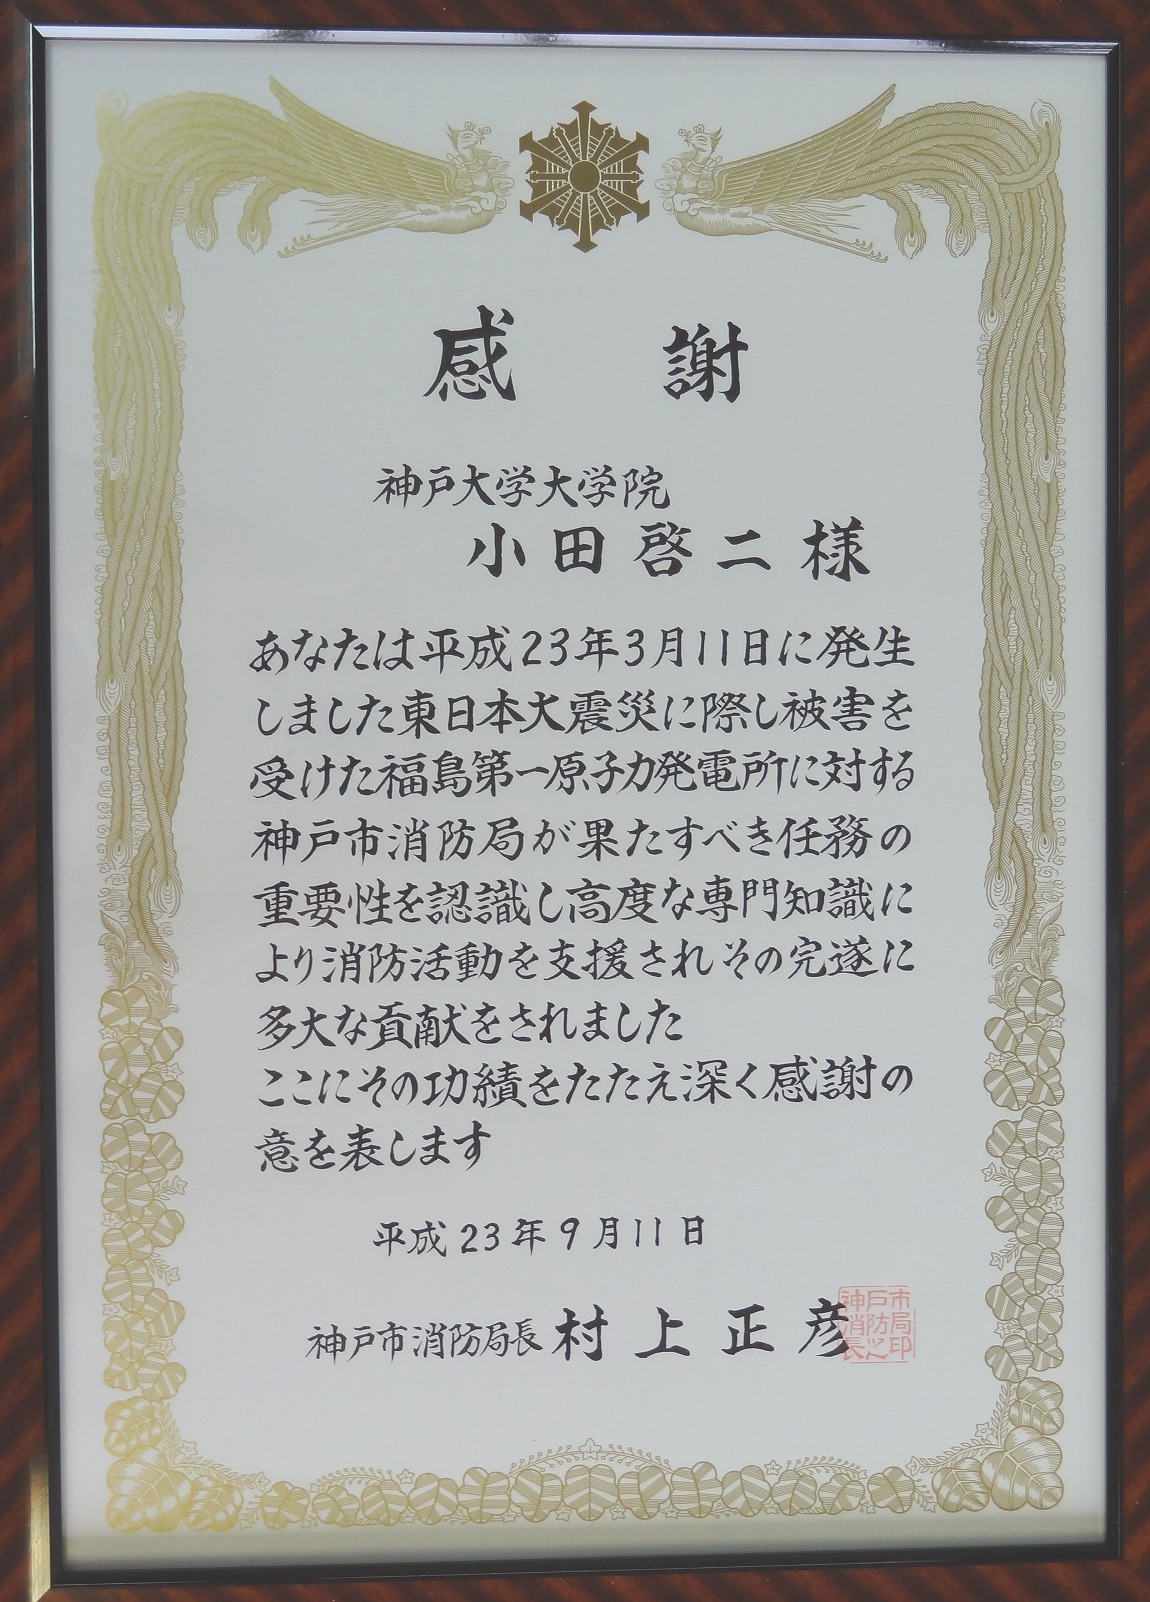 感謝
神戸大学大学院
小田啓二様
あなたは平成23年3月11日に発生
しました東日本大震災に際し被害を
受けた福島第一原子力発電所に対する
神戸市消防局が果たすべき任務の
重要性を認識し高度な専門知識に
より消防活動を支援されその完遂に
多大な貢献をされました
ここにその功績をたたえ深く感謝の
意を表します
平成23年9月11日
神戸市消防局長 村上正彦
神戸市
消防局
長之印